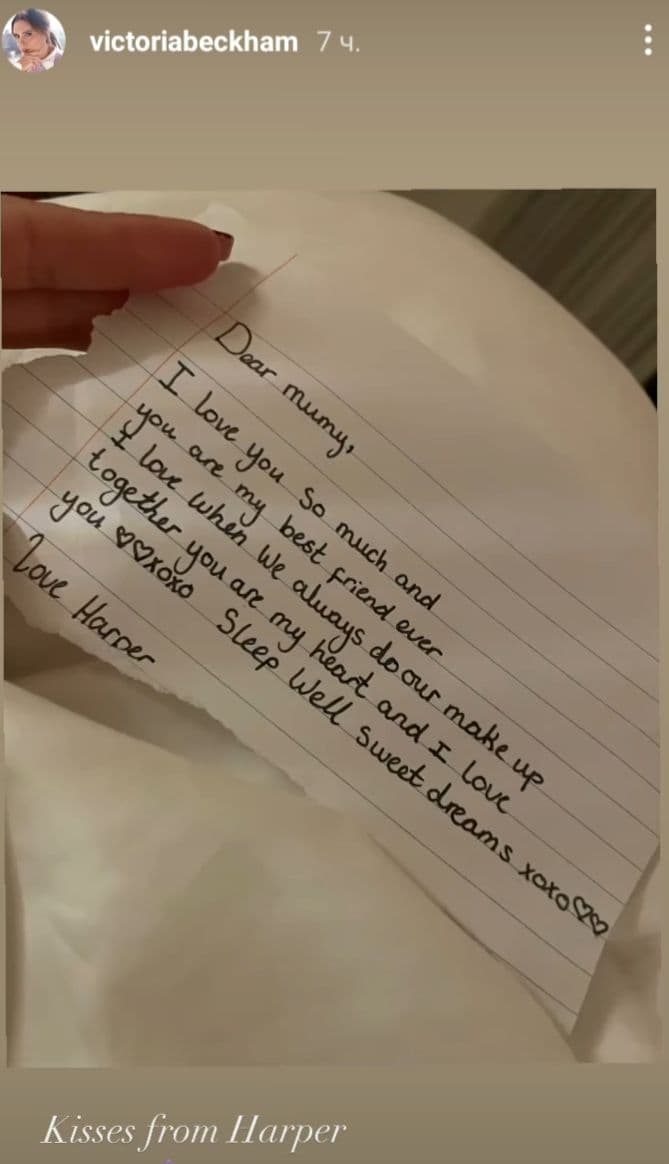 victoriabeckham 7 ч.
Dear mumy,
I love you so much and
you are my best friend ever
I love when we always do our make up
together you are my heart and I love
you ♡♡xoxo Sleep Well sweet dreams xoxo♡♡
Love Harper
Kisses from Harper